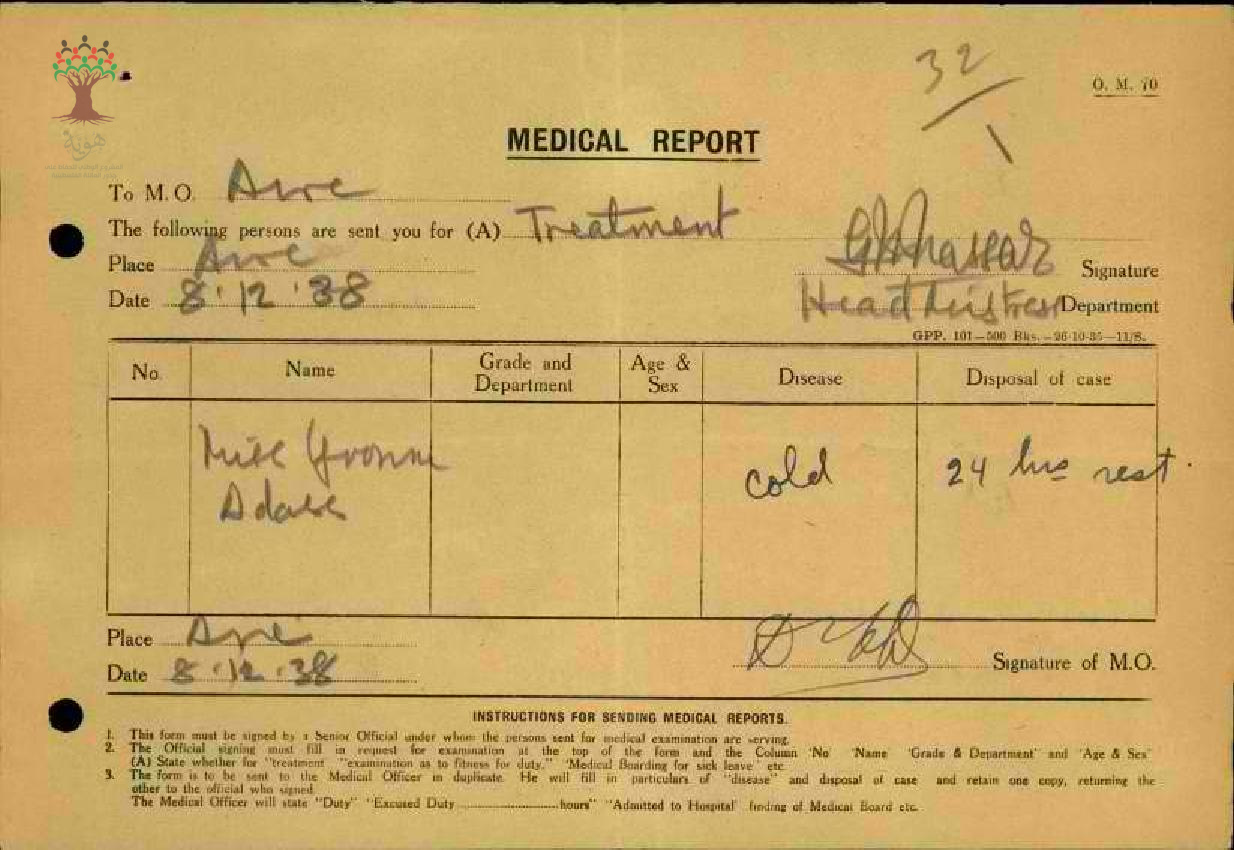 32/1
O. M. 70
هوية
MEDICAL REPORT
To M. O. Acre
The following persons are sent you for (A) Treatment
Place Acre
Signature
Date 8.12.38
Headmistress Department
GPP. 101—500 Bks.—26-10-35—11/S.
No. Name Grade and Department Age & Sex Disease Disposal of case
Miss Yvonne cold 24 hrs rest.
Place Acre
Date 8.12.38 Signature of M.O.
INSTRUCTIONS FOR SENDING MEDICAL REPORTS.
1. This form must be signed by a Senior Official under whom the persons sent for medical examination are serving.
2. The Official signing must fill in request for examination at the top of the form and the Column 'No' 'Name' 'Grade & Department" and 'Age & Sex'
(A) State whether for "treatment "examination as to fitness for duty." 'Medical Boarding for sick leave' etc
3. The form is to be sent to the Medical Officer in duplicate. He will fill in particulars of "disease" and disposal of case and retain one copy, returning the
other to the official who signed.
The Medical Officer will state "Duty" "Excused Duty ........................ hours" "Admitted to Hospital' finding of Medical Board etc.